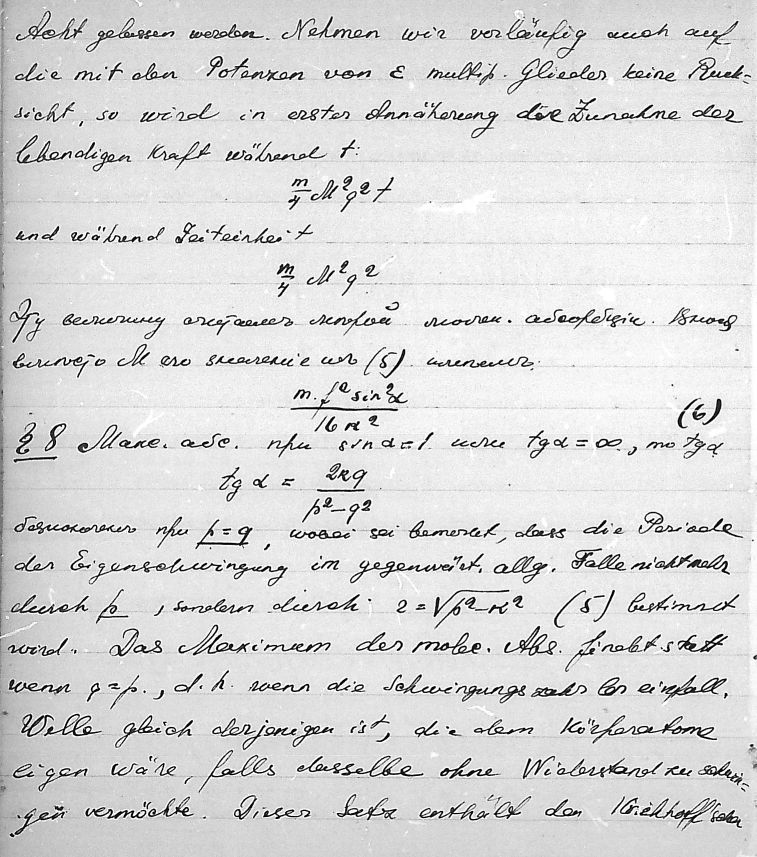 Acht gelassen werden. Nehmen wir vorläufig auch auf
die mit den Potenzen von ε multip. Glieder keine Rück-
sicht, so wird in erster Annäherung die Zunahme der
lebendigen Kraft während t:
m/4 M²q²t
und während Zeiteinheit
m/4 M²q²
Эту величину считаемъ мѣрой молек. абсорбціи. Внося
вмѣсто M его значеніе изъ (5) имѣемъ:
m.f² sin²α / 16κ² (6)
§ 8 Макс. абс. при sin α=1 или tgα=∞, но tgα
tg α = 2κq / p²−q²
безконеченъ при p=q, wobei sei bemerkt, dass die Periode
der Eigenschwingung im gegenwärt. allg. Falle nicht mehr
durch p, sondern durch r=√p²−κ² (5) bestimmt
wird. Das Maximum der molec. Abs. findet statt
wenn q=p., d.h. wenn die Schwingungszahl der einfall.
Welle gleich derjenigen ist, die dem Körperatome
eigen wäre, falls dasselbe ohne Widerstand zu schwin-
gen vermöchte. Dieser Satz enthält den Kirchhoff'schen